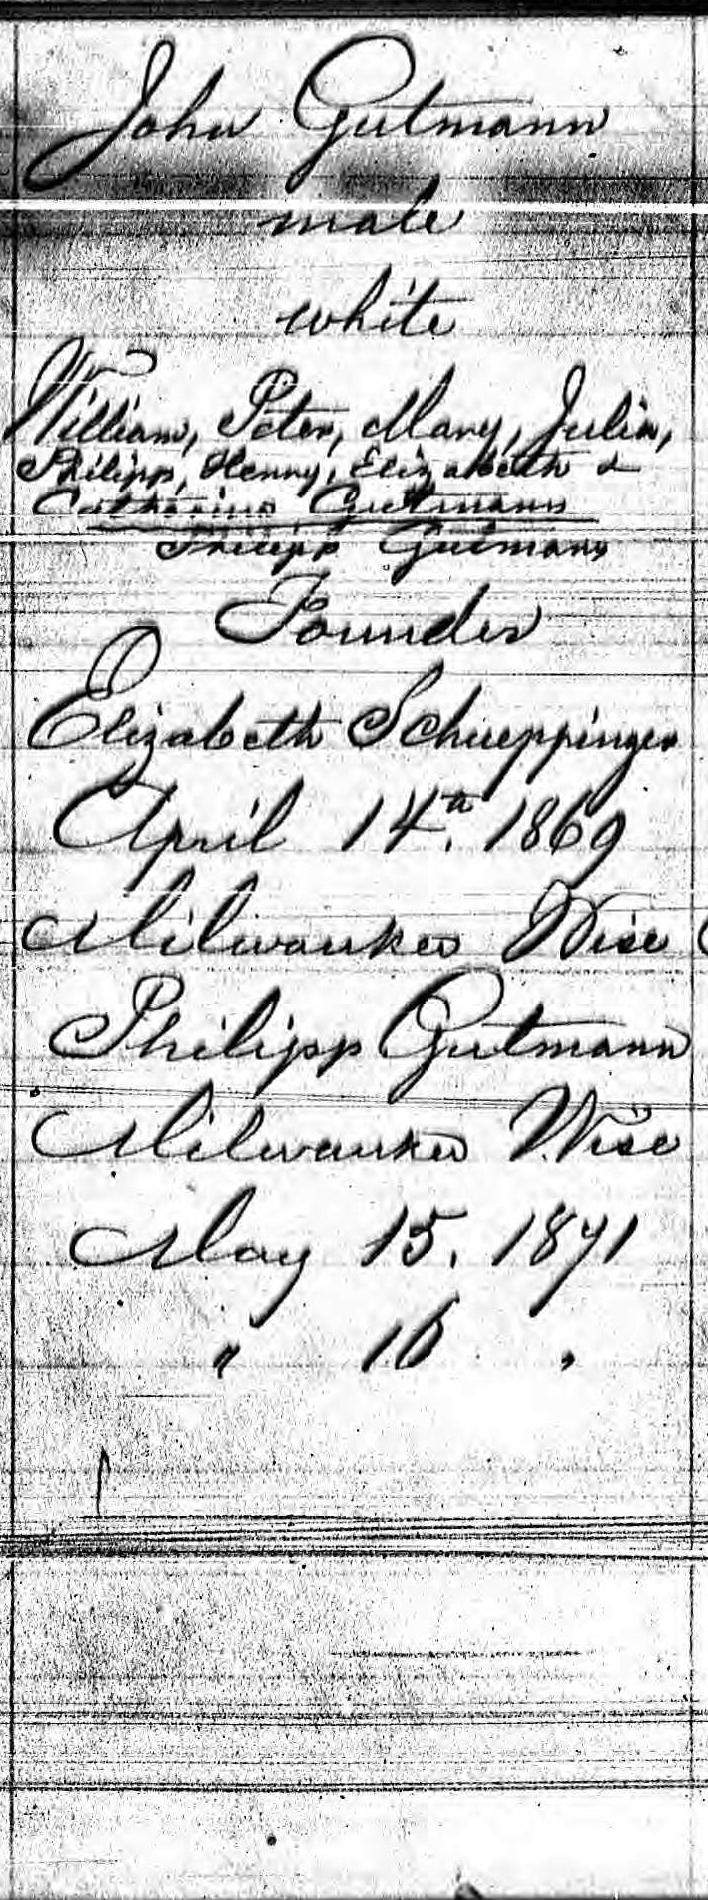 John Gutmann
male
white
William, Peter, Mary, Julia,
Philipp, Henry, Elizabeth &
Catharina Gutmann
Philipp Gutmann
Founder
Elizabeth Schueppinger
April 14th. 1869
Milwaukee Wise
Philipp Gutmann
Milwaukee Wise
May 15. 1871
" 16 "